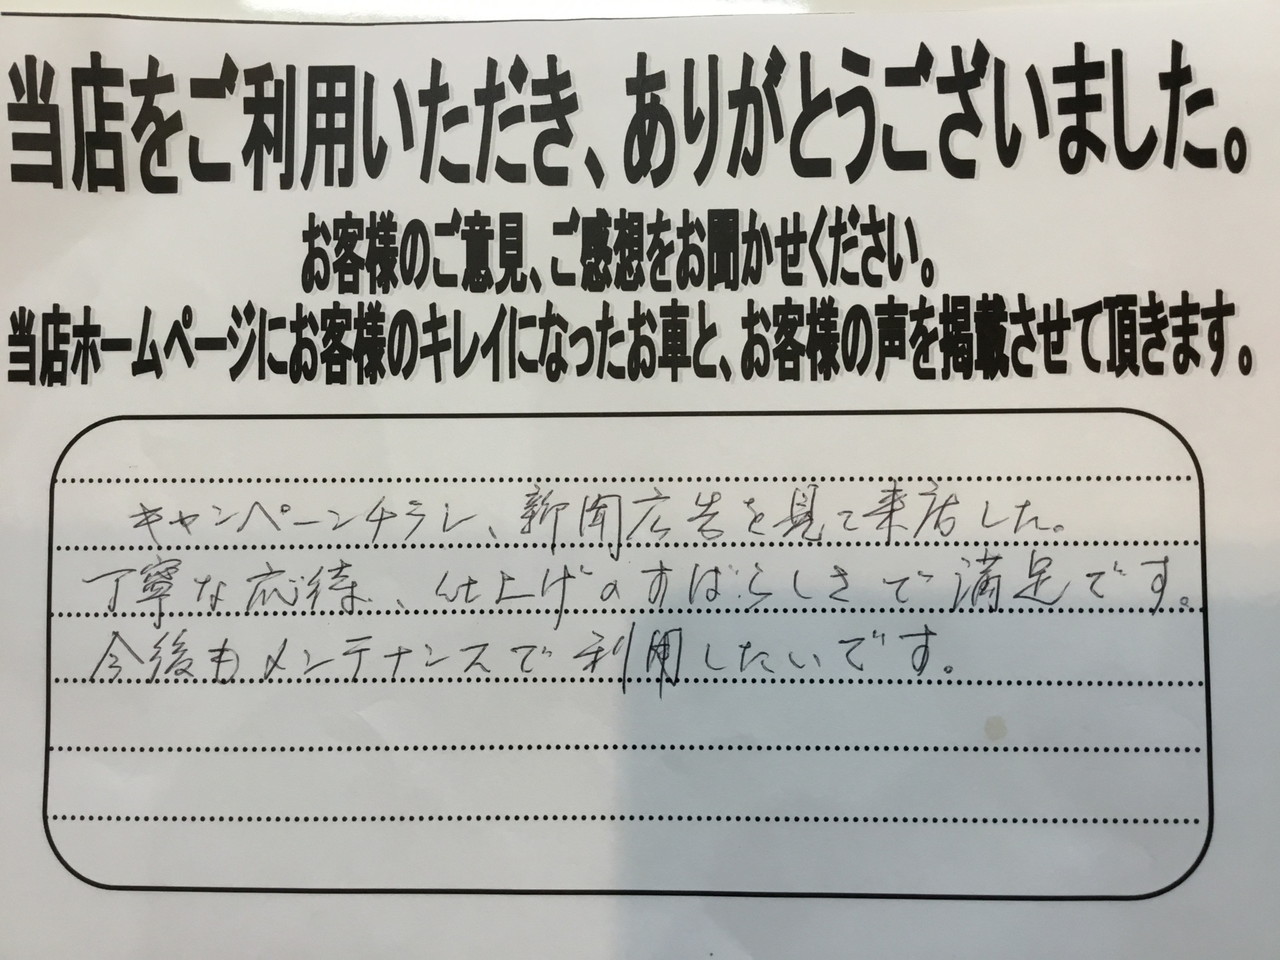 当店をご利用いただき、ありがとうございました。
お客様のご意見、ご感想をお聞かせください。
当店ホームページにお客様のキレイになったお車と、お客様の声を掲載させて頂きます。
キャンペーンチラシ、新聞広告を見て来店した。
丁寧な応待、仕上げのすばらしさで満足です。
今後もメンテナンスで利用したいです。